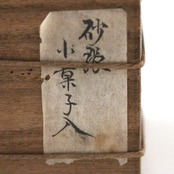 砂張
小菓子入